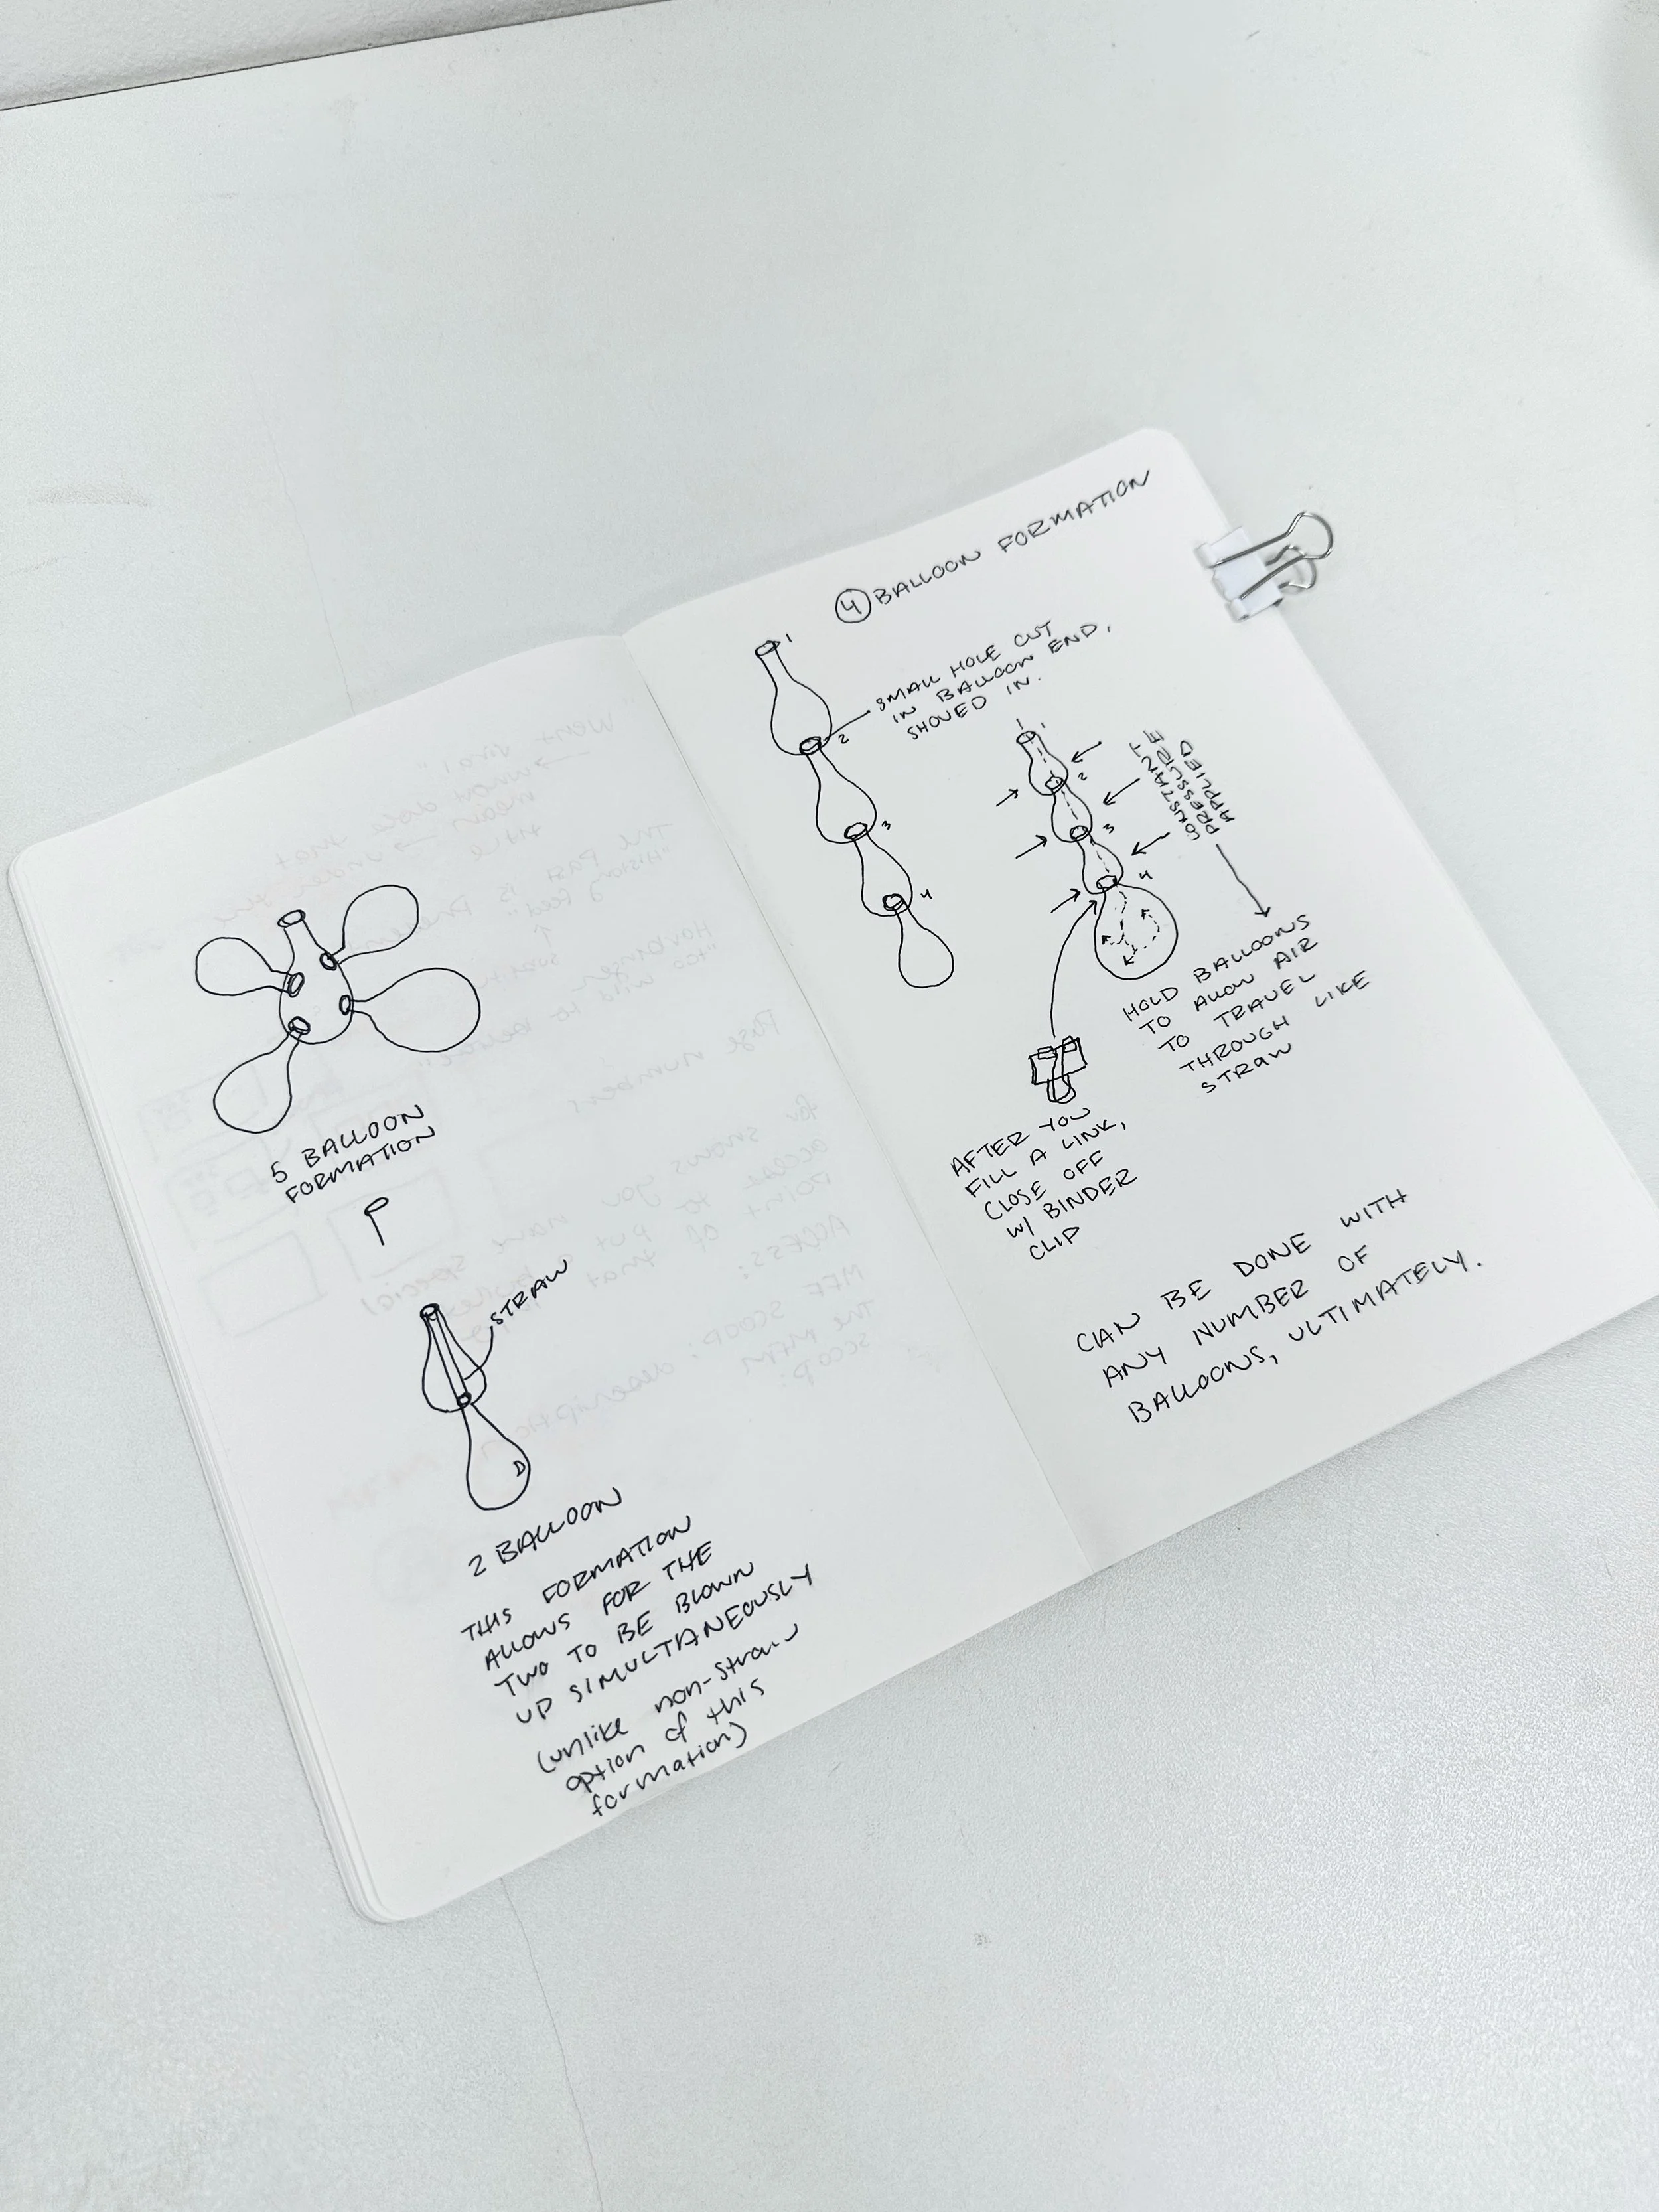 5 BALLOON
FORMATION
STRAW
D
2 BALLOON
THIS FORMATION
ALLOWS FOR THE
TWO TO BE BLOWN
UP SIMULTANEOUSLY
(unlike non-straw
option of this
formation)
4 BALLOON FORMATION
1
SMALL HOLE CUT
IN BALLOON END,
SHOVED IN.
2
3
4
1
1
2
3
4
CONSTANT
PRESSURE
APPLIED
HOLD BALLOONS
TO ALLOW AIR
TO TRAVEL
THROUGH LIKE
STRAW
AFTER YOU
FILL A LINK,
CLOSE OFF
W/ BINDER
CLIP
CAN BE DONE WITH
ANY NUMBER OF
BALLOONS, ULTIMATELY.